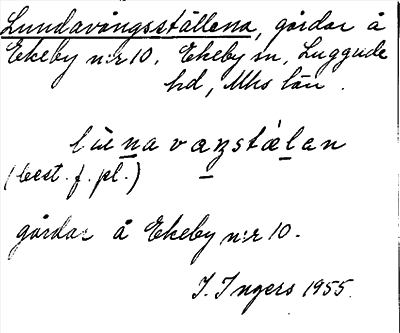 Lundavångsställena, gårdar å
Ekeby n:r 10. Ekeby sn, Luggude
hd, Mhs län.
lu̇na vaŋstälan
(best. f. pl.)
gårdar å Ekeby n:r 10.
I. Ingers 1955.